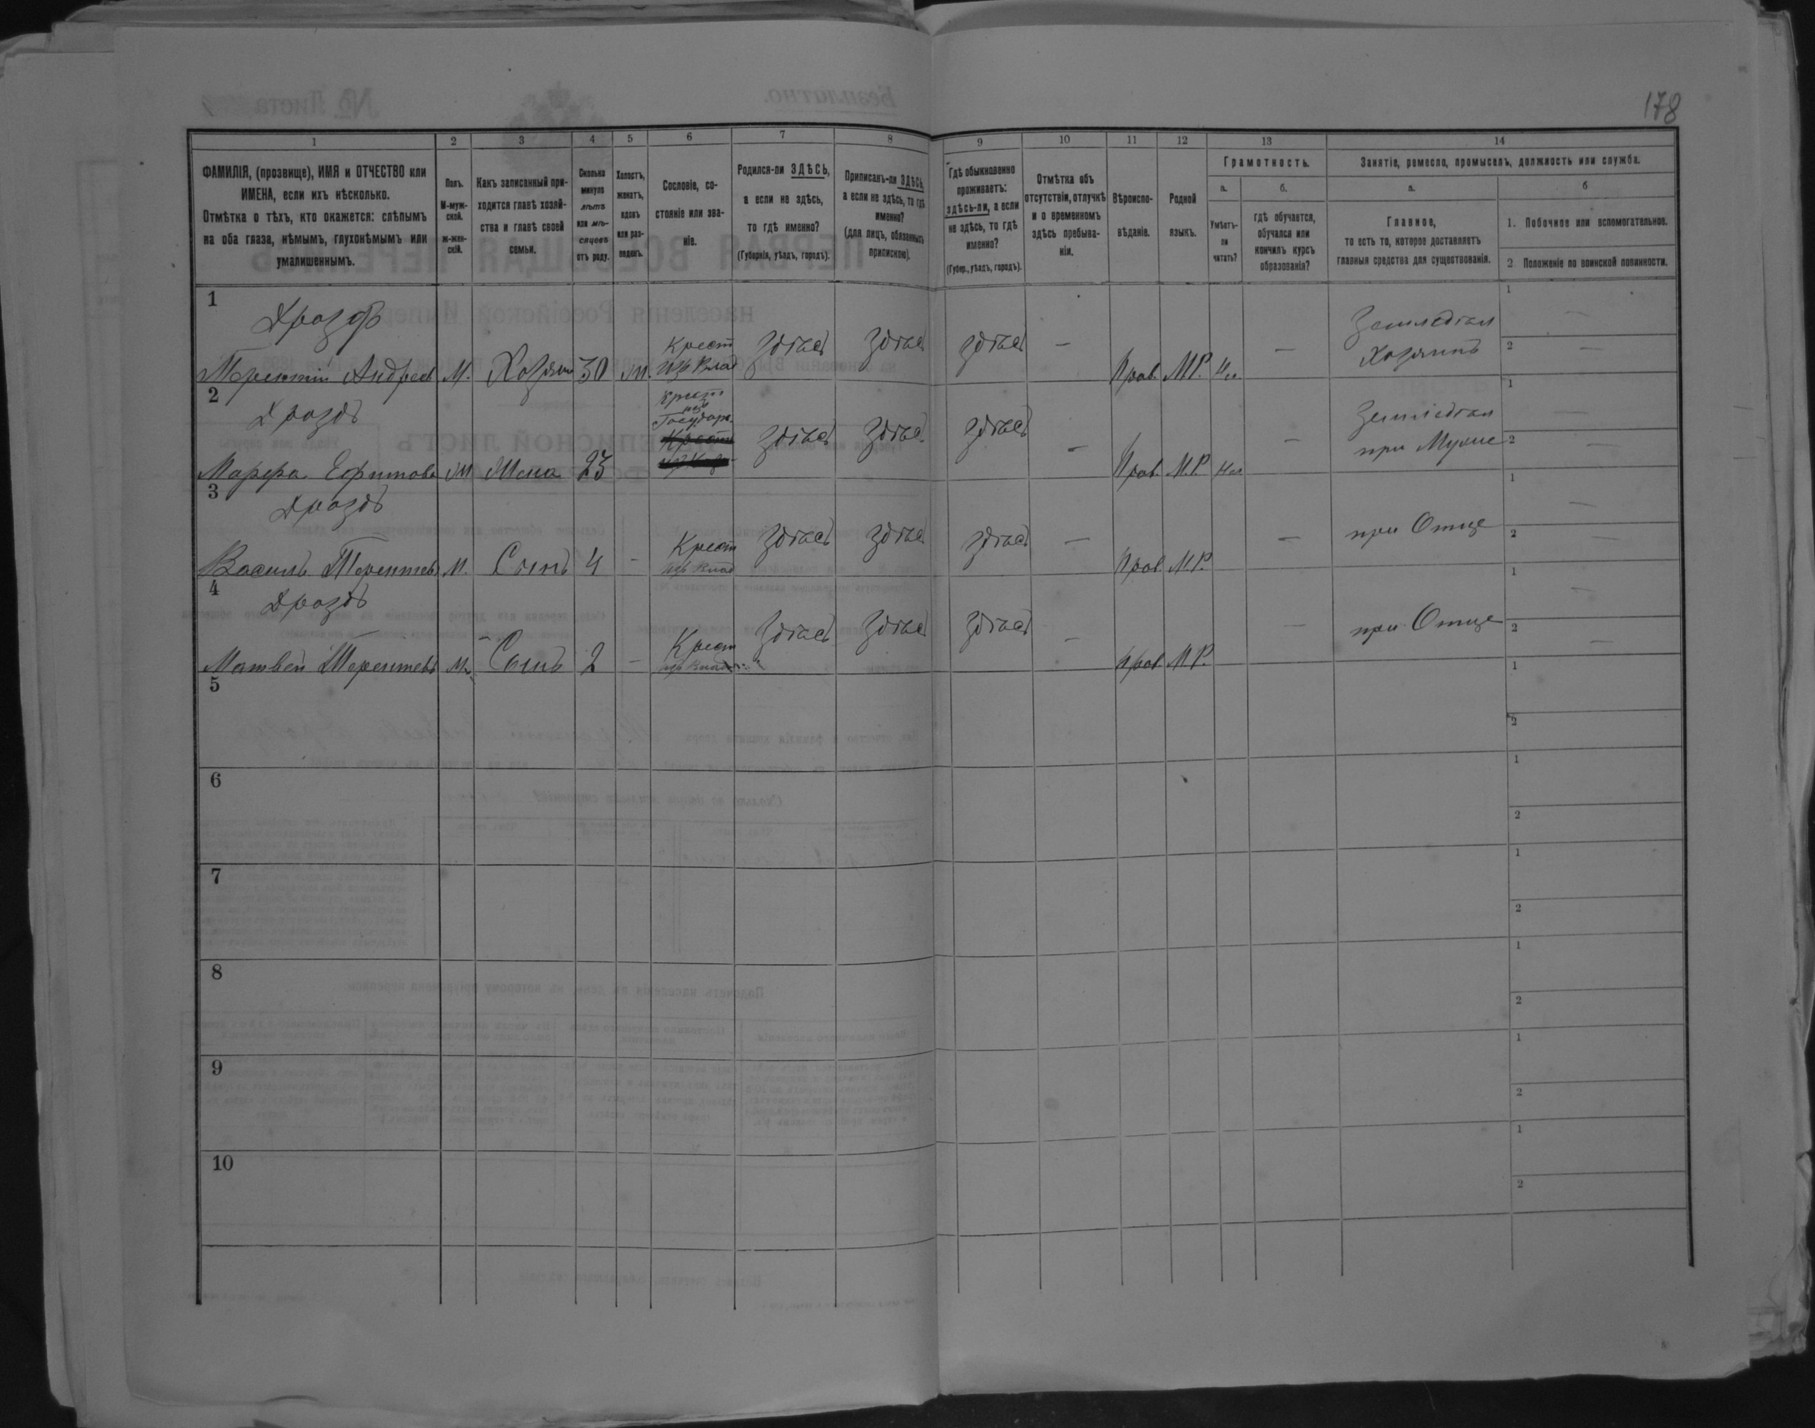 178
1
2
3
4
5
6
7
8
9
10
11
12
13
14
ФАМИЛІЯ, (прозвище), ИМЯ и ОТЧЕСТВО или
ИМЕНА, если ихъ нѣсколько.
Отмѣтка о тѣхъ, кто окажется: слѣпымъ
на оба глаза, нѣмымъ, глухонѣмымъ или
умалишеннымъ.
Полъ.
М-муж-
ской.
ж-жен-
скій.
Какъ записанный при-
ходится главѣ хозяй-
ства и главѣ своей
семьи.
Сколько
минуло
лѣтъ
или мѣ-
сяцевъ
отъ роду.
Холостъ,
женатъ,
вдовъ
или раз-
веденъ.
Сословіе, со-
стояніе или зва-
ніе.
Родился-ли ЗДѢСЬ,
а если не здѣсь,
то гдѣ именно?
(Губернія, уѣздъ, городъ).
Приписанъ-ли ЗДѢСЬ,
а если не здѣсь, то гдѣ
именно?
(для лицъ, обязанныхъ
припискою).
Гдѣ обыкновенно
проживаетъ:
здѣсь-ли, а если
не здѣсь, то гдѣ
именно?
(Губер., уѣздъ, городъ).
Отмѣтка объ
отсутствіи, отлучкѣ
и о временномъ
здѣсь пребыва-
ніи.
Вѣроиспо-
вѣданіе.
Родной
языкъ.
Грамотность.
а.
Умѣетъ-
ли
читать?
б.
гдѣ обучается,
обучался или
кончилъ курсъ
образованія?
Занятіе, ремесло, промыселъ, должность или служба.
а.
Главное,
то есть то, которое доставляетъ
главныя средства для существованія.
б
1. Побочное или вспомогательное.
2. Положеніе по воинской повинности.
1
Дроздъ
Терентій Андреевъ М. Хозяинъ 30 Крест. изъ Влад здѣсь здѣсь здѣсь — Прав. М.Р. — Земледѣл Хозяинъ
1 —
2 —
2
Дроздъ
Марфа Ефимова Жена 23 Крест изъ Государ. здѣсь здѣсь здѣсь — Прав. М.Р. — Земледѣл при Мужѣ
1 —
2 —
3
Дроздъ
Василь Терентьевъ М. Сынъ 4 — Крест изъ Влад здѣсь здѣсь здѣсь — Прав. М.Р. — при Отцѣ
1 —
2 —
4
Дроздъ
Матвей Терентьевъ М. Сынъ 2 — Крест изъ Влад здѣсь здѣсь здѣсь — Прав М.Р. — при Отцѣ
1 —
2 —
5
1
2
6
1
2
7
1
2
8
1
2
9
1
2
10
1
2